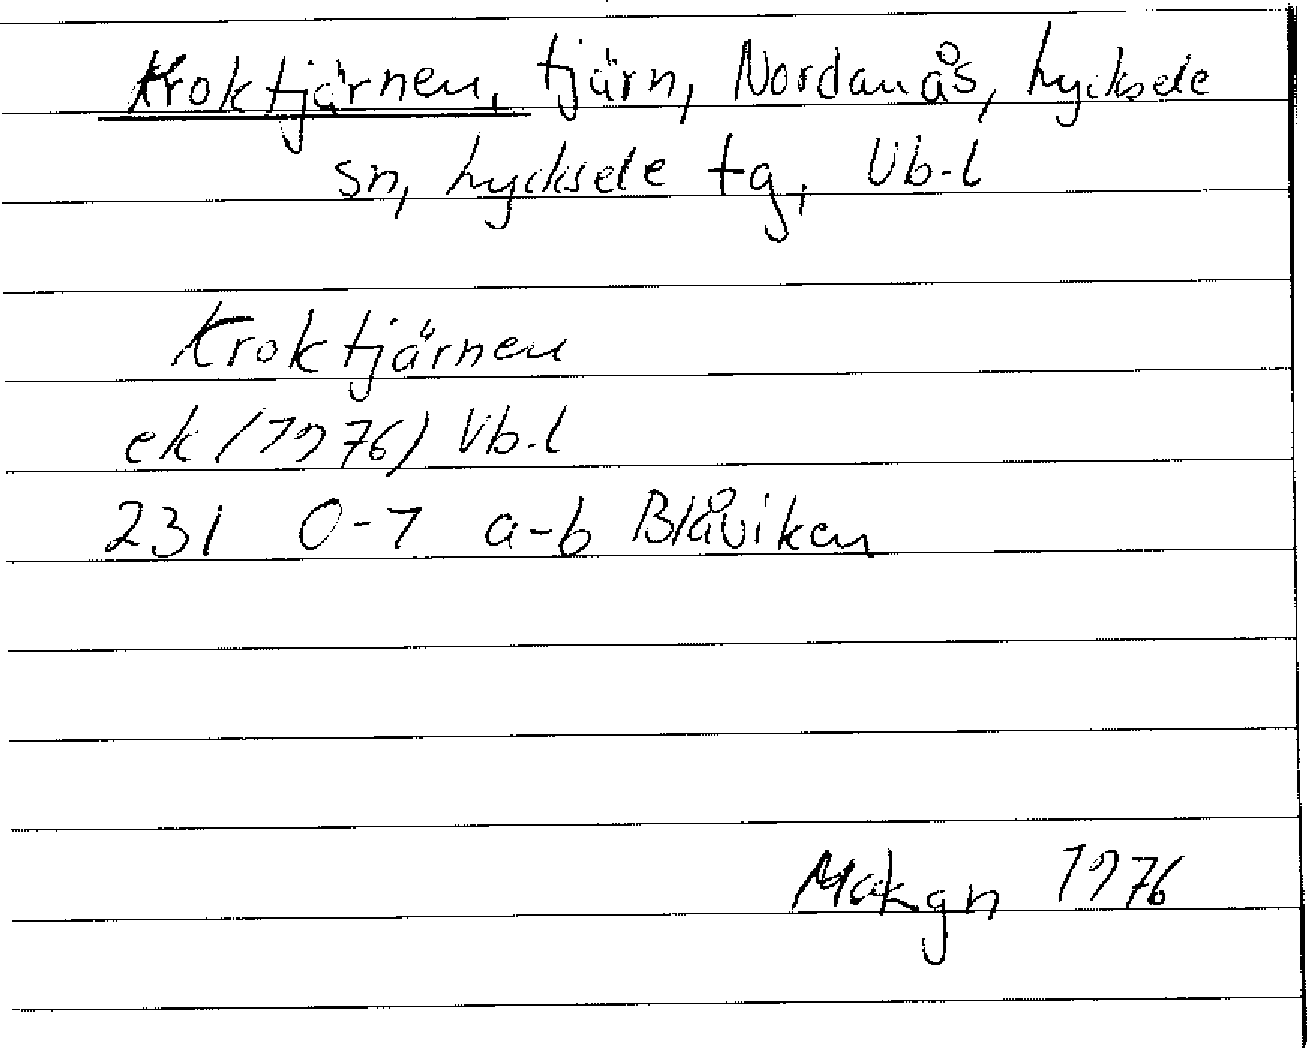 Kroktjärnen, tjärn, Nordanås, Lycksele
sn, Lycksele tg, Vb-l
Kroktjärnen
ek (1976) Vb-l
231 0-1 a-b Blåviken
Makgn 1976